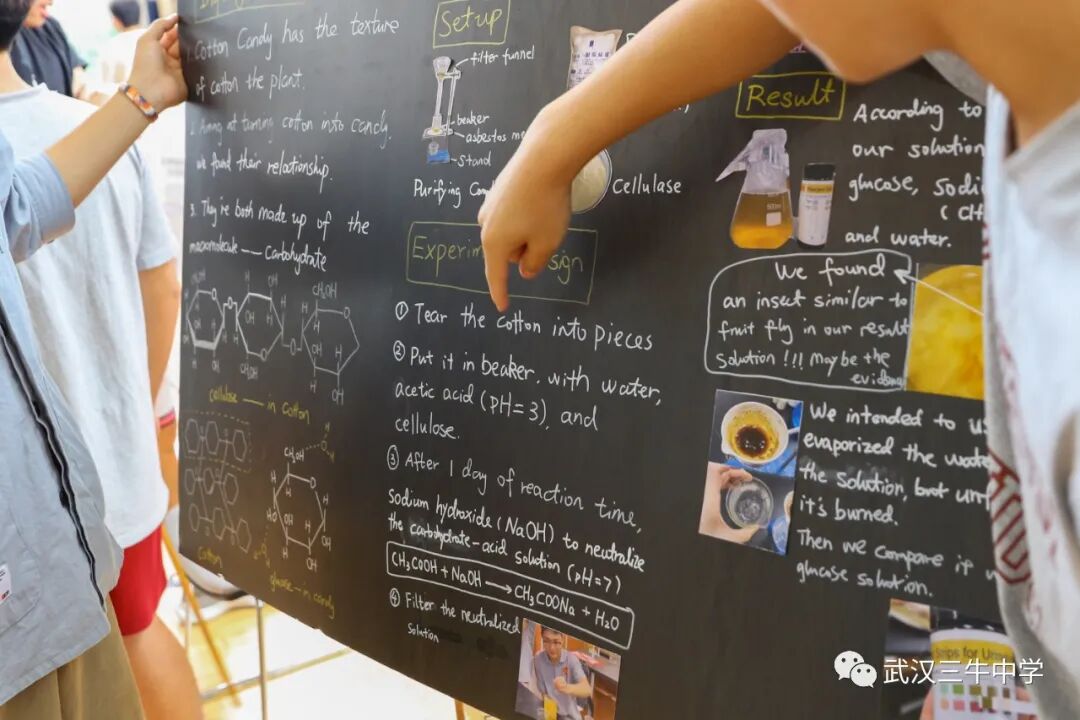 1. Cotton Candy has the texture
of cotton the plant.
2. Aiming at turning cotton into candy,
we found their relationship.
3. They're both made up of the
macromolecule — Carbohydrate
cellulose — in cotton
Cotton
glucose — in candy
Setup
filter funnel
beaker
asbestos
stand
Purifying
Cellulase
① Tear the cotton into pieces
② Put it in beaker, with water,
acetic acid (pH=3), and
cellulose.
③ After 1 day of reaction time,
Sodium hydroxide (NaOH) to neutralize
the carbohydrate-acid solution (pH=7)
CH₃COOH + NaOH → CH₃COONa + H₂O
④ Filter the neutralized
solution
Result
According to
our solution
glucose,
and water.
We found
an insect similar to
fruit fly in our result
solution!!! May be the
We intended to
evaporized the
the solution, but
it's burned.
Then we compare it
glucose solution.
武汉三牛中学